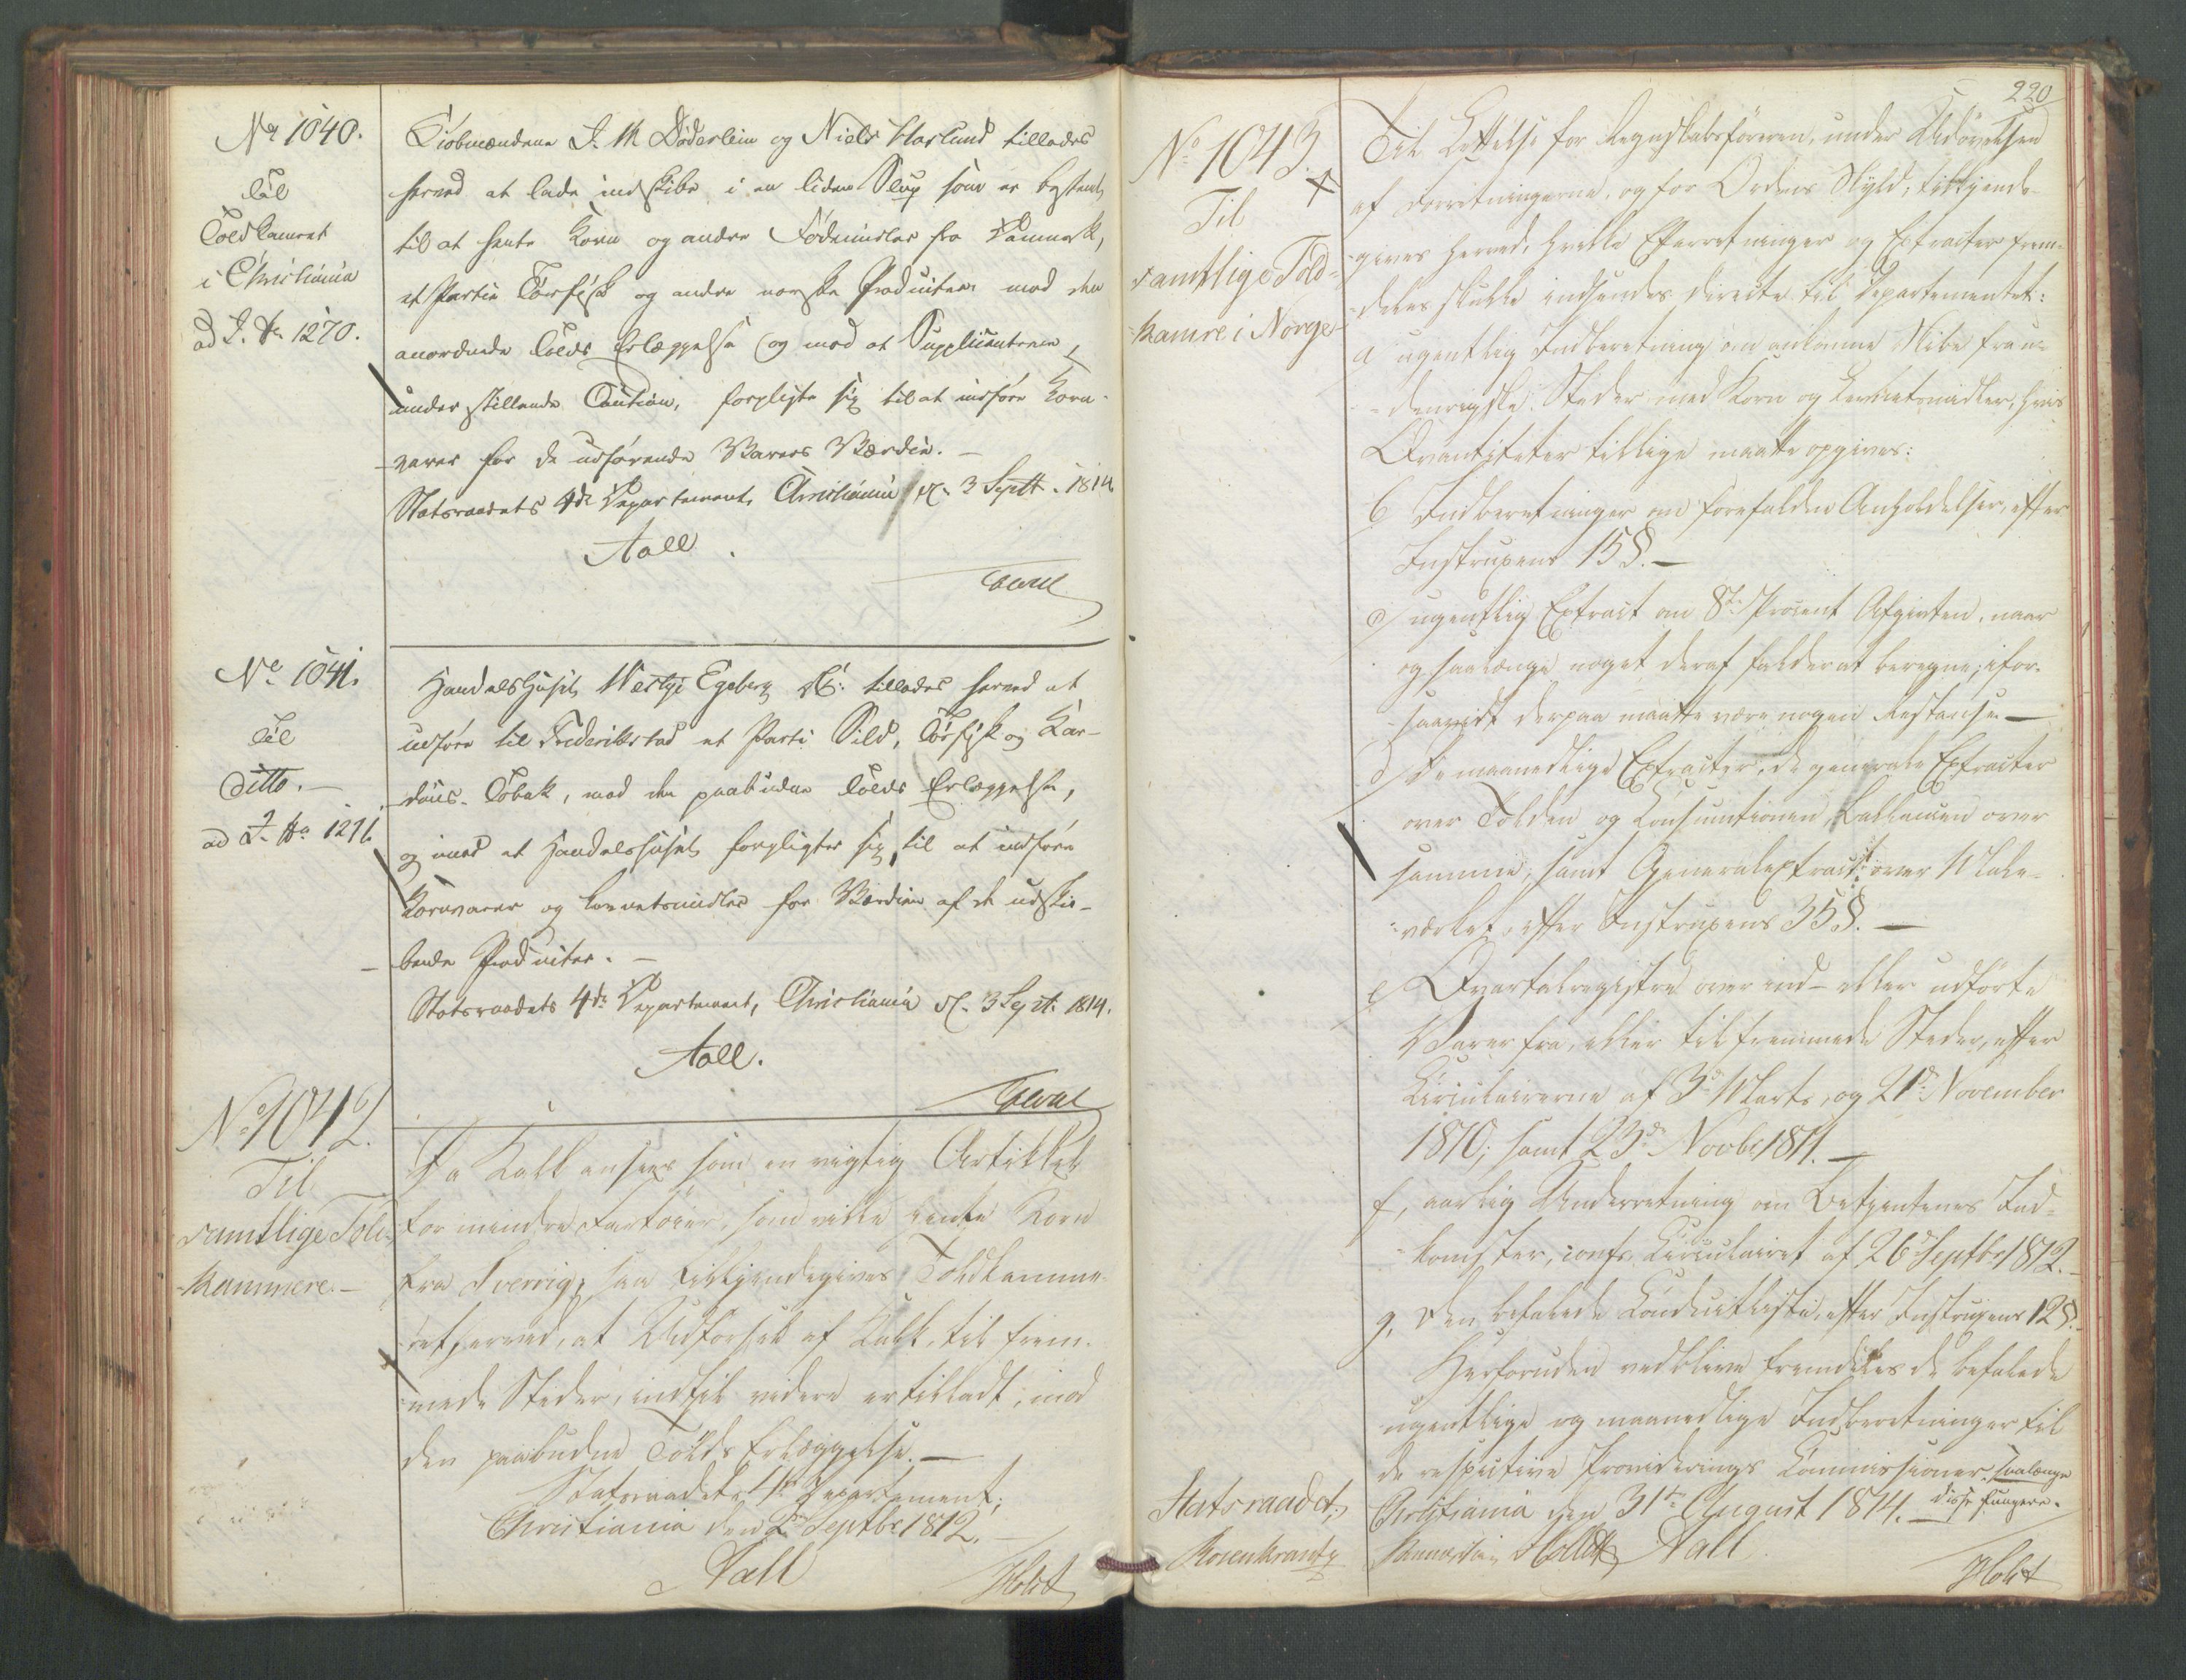 No 1040.
Til
Toldkamret
i Christiania
ad J. No 1270.
Kiöbmændene J. M Döderlein og Niels Haslund tillades
herved at lade indskibe i en liden Slup som er bestemt
til at hente Korn og andre Födemidler fra Danmark,
et Partie Törfisk og andre norske Producter mod den
anordnede Tolds Erlæggelse og mod at Supplicanterne,
under stillende Caution, forpligte sig til at indföre Korn-
varer for de udförende Varers Værdie. —
Statsraadets 4de Departement, Christiania d. 3 Septr. 1814
Aall.
No 1041.
Til
Ditto. —
ad J. No 1271.
Handelshuset Westye Egeberg &C: tillades herved at
udföre til Frederikstad et Parti Sild, Törfisk og Kar-
dus-Tobak, mod den paabudne Tolds Erlæggelse,
og imod at Handelshuset forpligter sig til at indföre
Kornvarer og Levnetsmidler for Værdien af de udski-
bende Producter. —
Statsraadets 4de Departement, Christiania d. 3 Sept: 1814.
Aall.
No 1042.
Til
samtlige Told-
kammere. —
Da Kalk ansees som en vigtig Artikkel
for mindre Fartöier, som ville hente Korn
fra Sverrig, saa tilkjendegives Toldkamme-
ret herved, at Udförsel af Kalk, til frem-
mede Steder, indtil videre er tilladt, imod
den paabudne Tolds Erlæggelse. —
Statsraadets 4de Departement,
Christiania den 2den Septbr 1812.
Aall
Holst
220
No 1043.
Til
samtlige Told-
kamre i Norge
Til Lettelse for Regnskabsföreren, under Udövelsen
af Forretningerne, og for Ordens Skyld, tilkjende-
gives herved, hvilke Efterretninger og Extracter frem-
deles skulle indsendes directe til Departementet:
a ugentlig Indberetning om ankomne Skibe fra u-
denrigske Steder med Korn og Levnetsmidler, hvis
Qvantiteter tillige maatte opgives:
b Indberetninger om forefaldne Anholdelser, efter
Instruxens 15 §. —
c) ugentlig Extract om 8te Procent Afgivten, naar
og saalænge noget deraf falder at beregne, ifor-
saavidt derpaa maatte være nogen Restance —
d) De maanedlige Extracter, de generale Extracter
over Tolden og Consumtionen, Ballancen over
samme, samt Generalextract over Male-
værket, efter Instruxens 35 §. —
e) Qvartalregistre over ind- eller udförte
Varer fra, eller til fremmede Steder, efter
Circulairerne af 3de Marts, og 21de November
1810, samt 23de Novbr 1811. —
f, aarlig Underretning om Betjentenes Ind-
komster, confr. Circulairet af 26de Septbr 1812. —
g, den befalede Conduitliste, efter Instruxens 12 §. —
Herforuden vedblive fremdeles de befalede
ugentlige og maanedlige Indberetninger til
de respective Providerings Commissioner. saalænge
disse fungere.
Christiania den 31te August 1814. —
Statsraadet,
Rosenkrantz
Aall
Holst